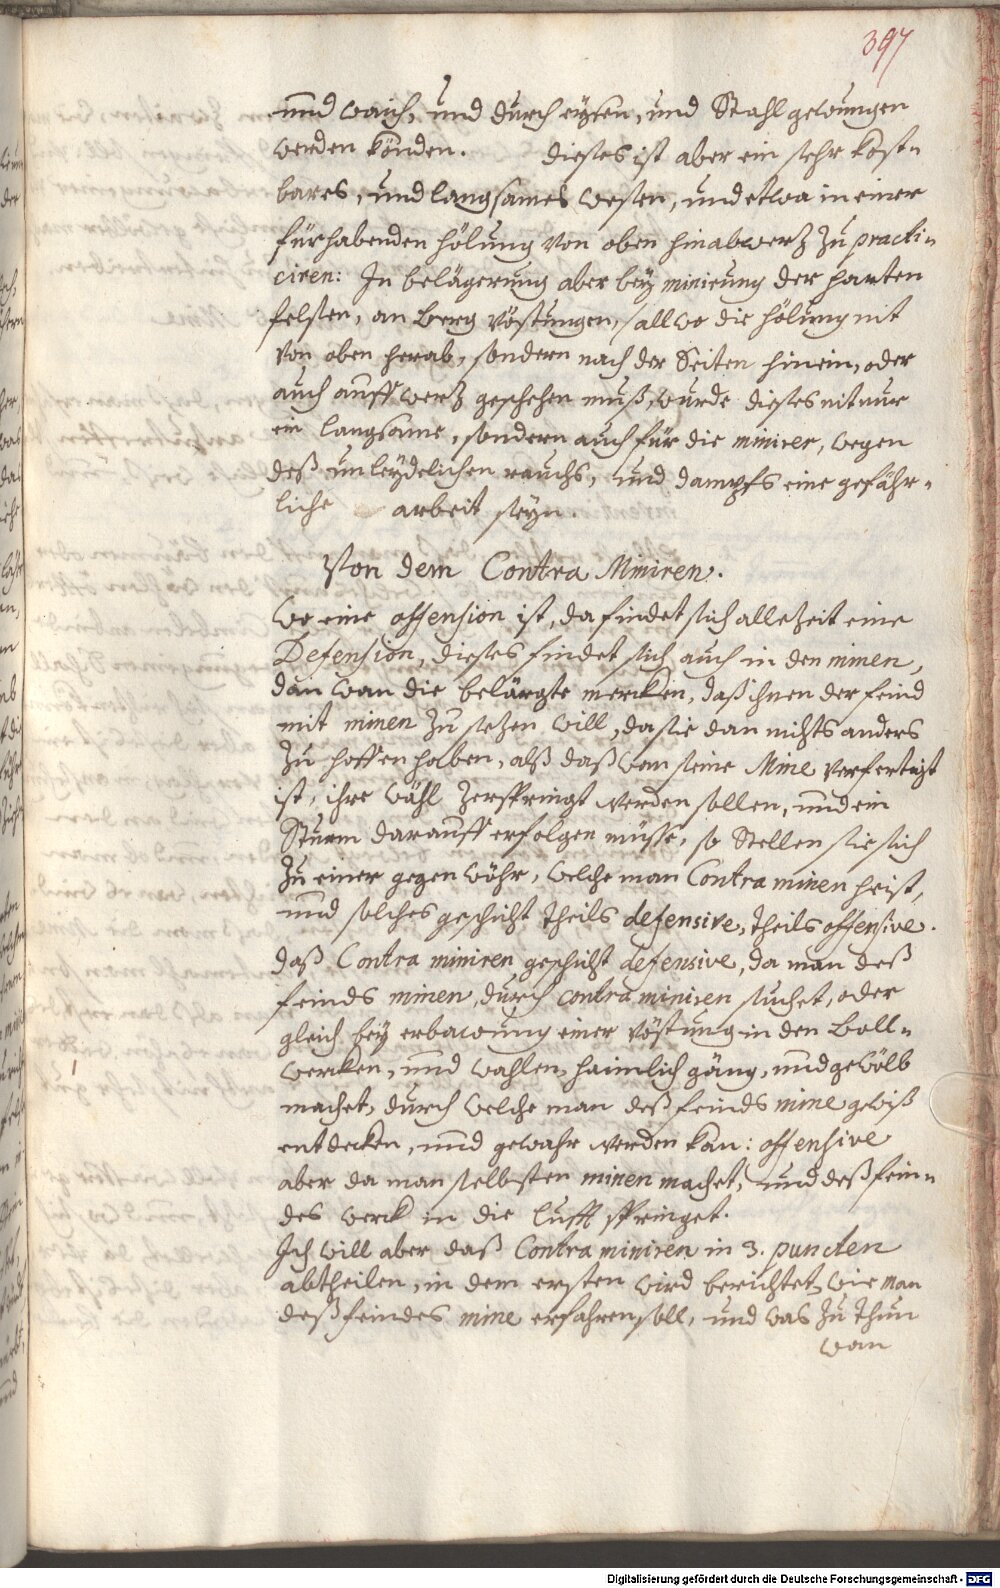 397
und waich, und durch eysen, und Stahl gewungen
werden könden. dieses ist aber ein sehr kost=
bares, und langsames wesen, und etwa in einer
fürhabenden hölung von oben hinabwerz zu practi=
ciren: In belägerung aber bey minirung der harten
felsen, an Berg Vöstungen, allwo die hölung nit
von oben herab, sondern nach der Seiten hinein, oder
auch auffwerz geschehen muß, wurde dieses nit nur
ein langsame, sondern auch für die minirer, wegen
deß unleydelichen rauchs, und dampfs eine gefähr=
liche arbeit seyn.
Von dem Contra Miniren.
Wo eine offension ist, da findet sich allezeit eine
Defension, dieses findet sich auch in den minen,
dan wan die belärgte mercken, daß ihnen der feind
mit minen zu sezen will, da sie dan nichts anders
zu hoffen haben, alß daß wan seine Mine verfertigt
ist, ihre wähl zersprengt werden sollen, und ein
Sturm darauff erfolgen müsse, so Stellen sie sich
zu einer gegen wöhr, welche man Contra minen heist,
und solches geschicht theils defensive, theils offensive.
daß Contra miniren geschicht defensive, da man deß
feinds minen, durch contra miniren suchet, oder
gleich bey erbawung einer Vöstung in den Boll=
wercken, und wahlen, haimlich gäng, und gewölb
machet, durch welche man deß feinds mine gewiß
entdecken, und gewahr werden kan: offensive
aber da man selbsten minen machet, und deß fein=
des werck in die lufft springet.
Ich will aber daß Contra miniren in 3. puncten
abtheilen, in dem ersten wird berichtet, wie man
deß feindes mine erfahren soll, und was zu thun
wan
Digitalisierung gefördert durch die Deutsche Forschungsgemeinschaft - DFG